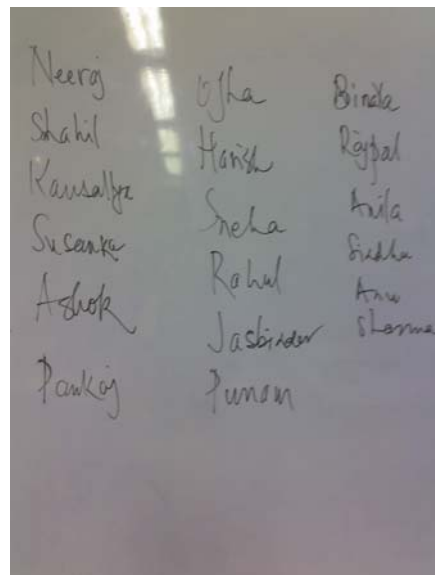 Neeraj
Shahil
Kausalya
Susanka
Ashok
Pankaj
Usha
Harish
Sneha
Rahul
Jasbinder
Punam
Bindla
Rajpal
Anila
Siddha
Anu
Sharma